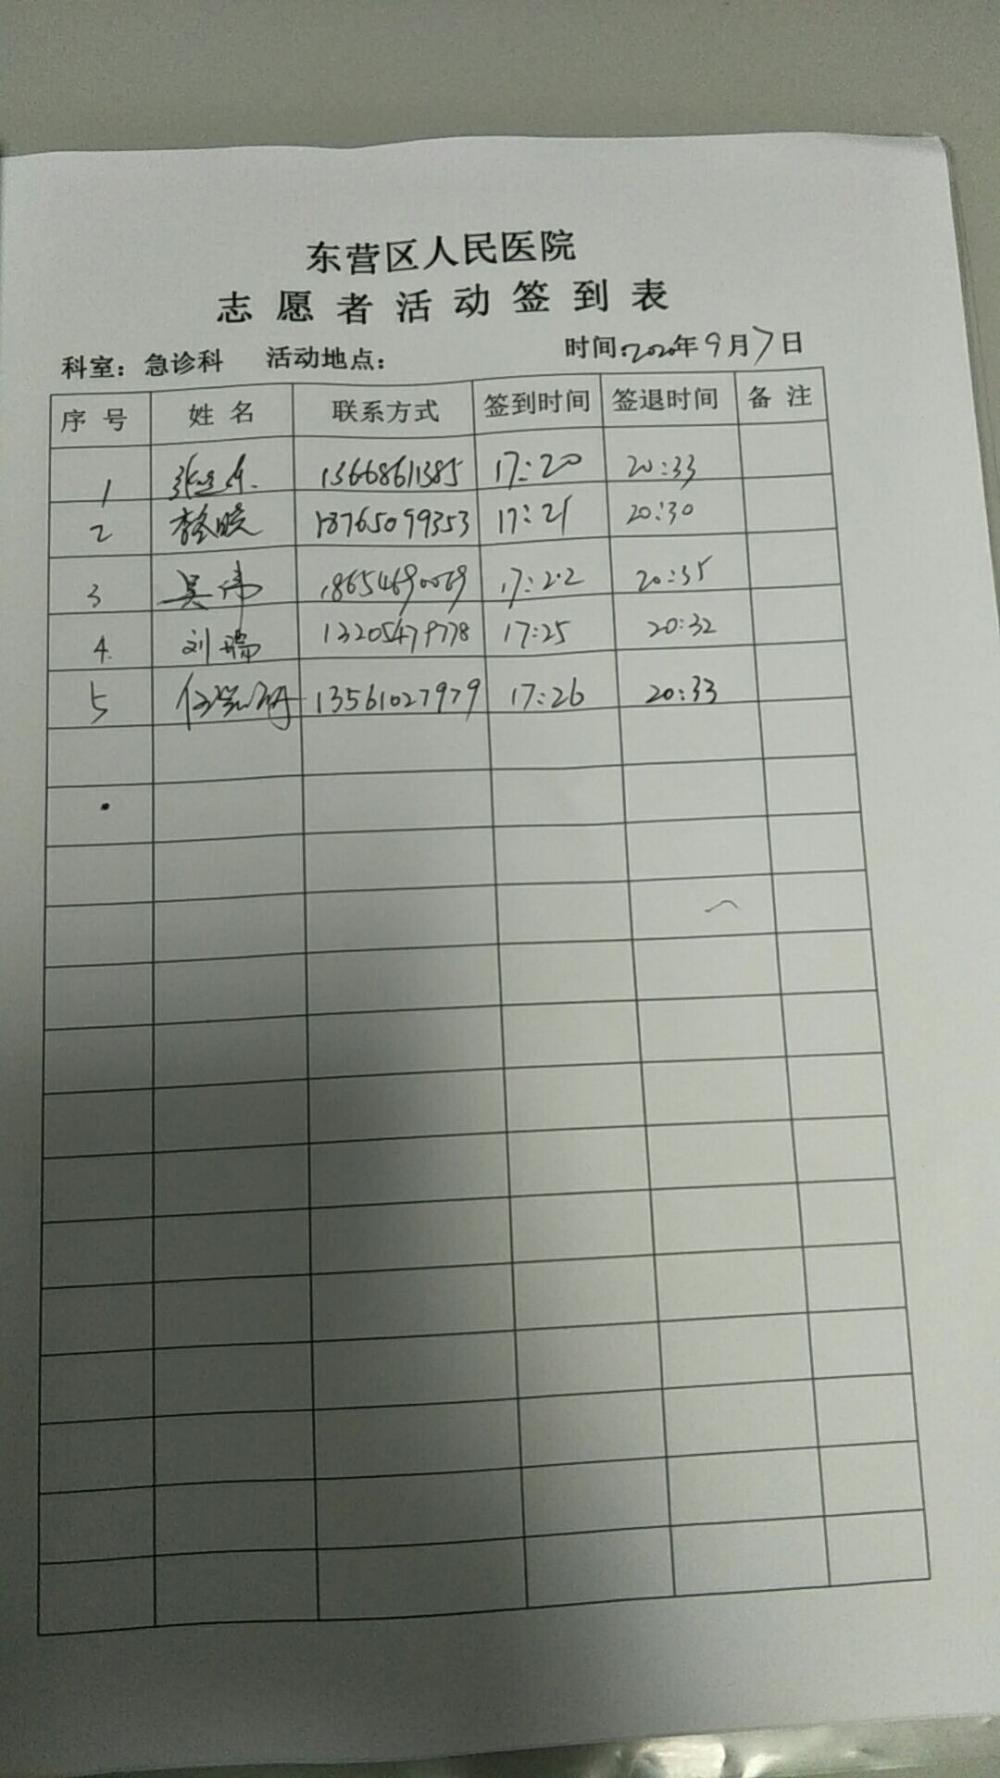 东营区人民医院
志愿者活动签到表
科室：急诊科 活动地点： 时间：2020年9月7日
序号 姓名 联系方式 签到时间 签退时间 备注
1 13668611385 17:20 20:33
2 18765099353 17:21 20:30
3 吴伟 17:22 20:35
4 刘瑞 13205479778 17:25 20:32
5 13561027979 17:26 20:33